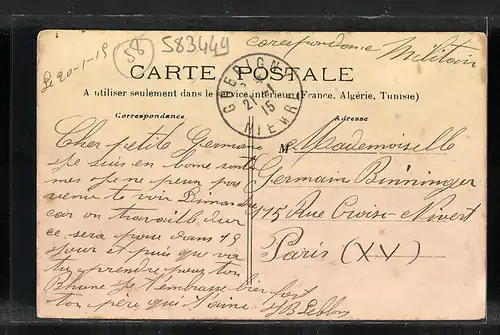 Le 20-1-15
58
583449
Corespondance Militair
CARTE POSTALE
A utiliser seulement dans le service intérieur (France, Algérie, Tunisie)
GUERIGNY
21-1
15
NIEVRE
Correspondance
Cher petite Germaine
Je suis en bone santé
mes je ne peux pas
venir te voir Dimanche
car on travaille dur
ce sera pour dans 15
jour et puis que va
tu prendre pour ton
Rhume Je t'embrasse bien fort
ton père qui t'aime
JB Leblanc
Adresse
M Mademoiselle
Germain Binninger
175 Rue Croix-Nivert
Paris (XV)